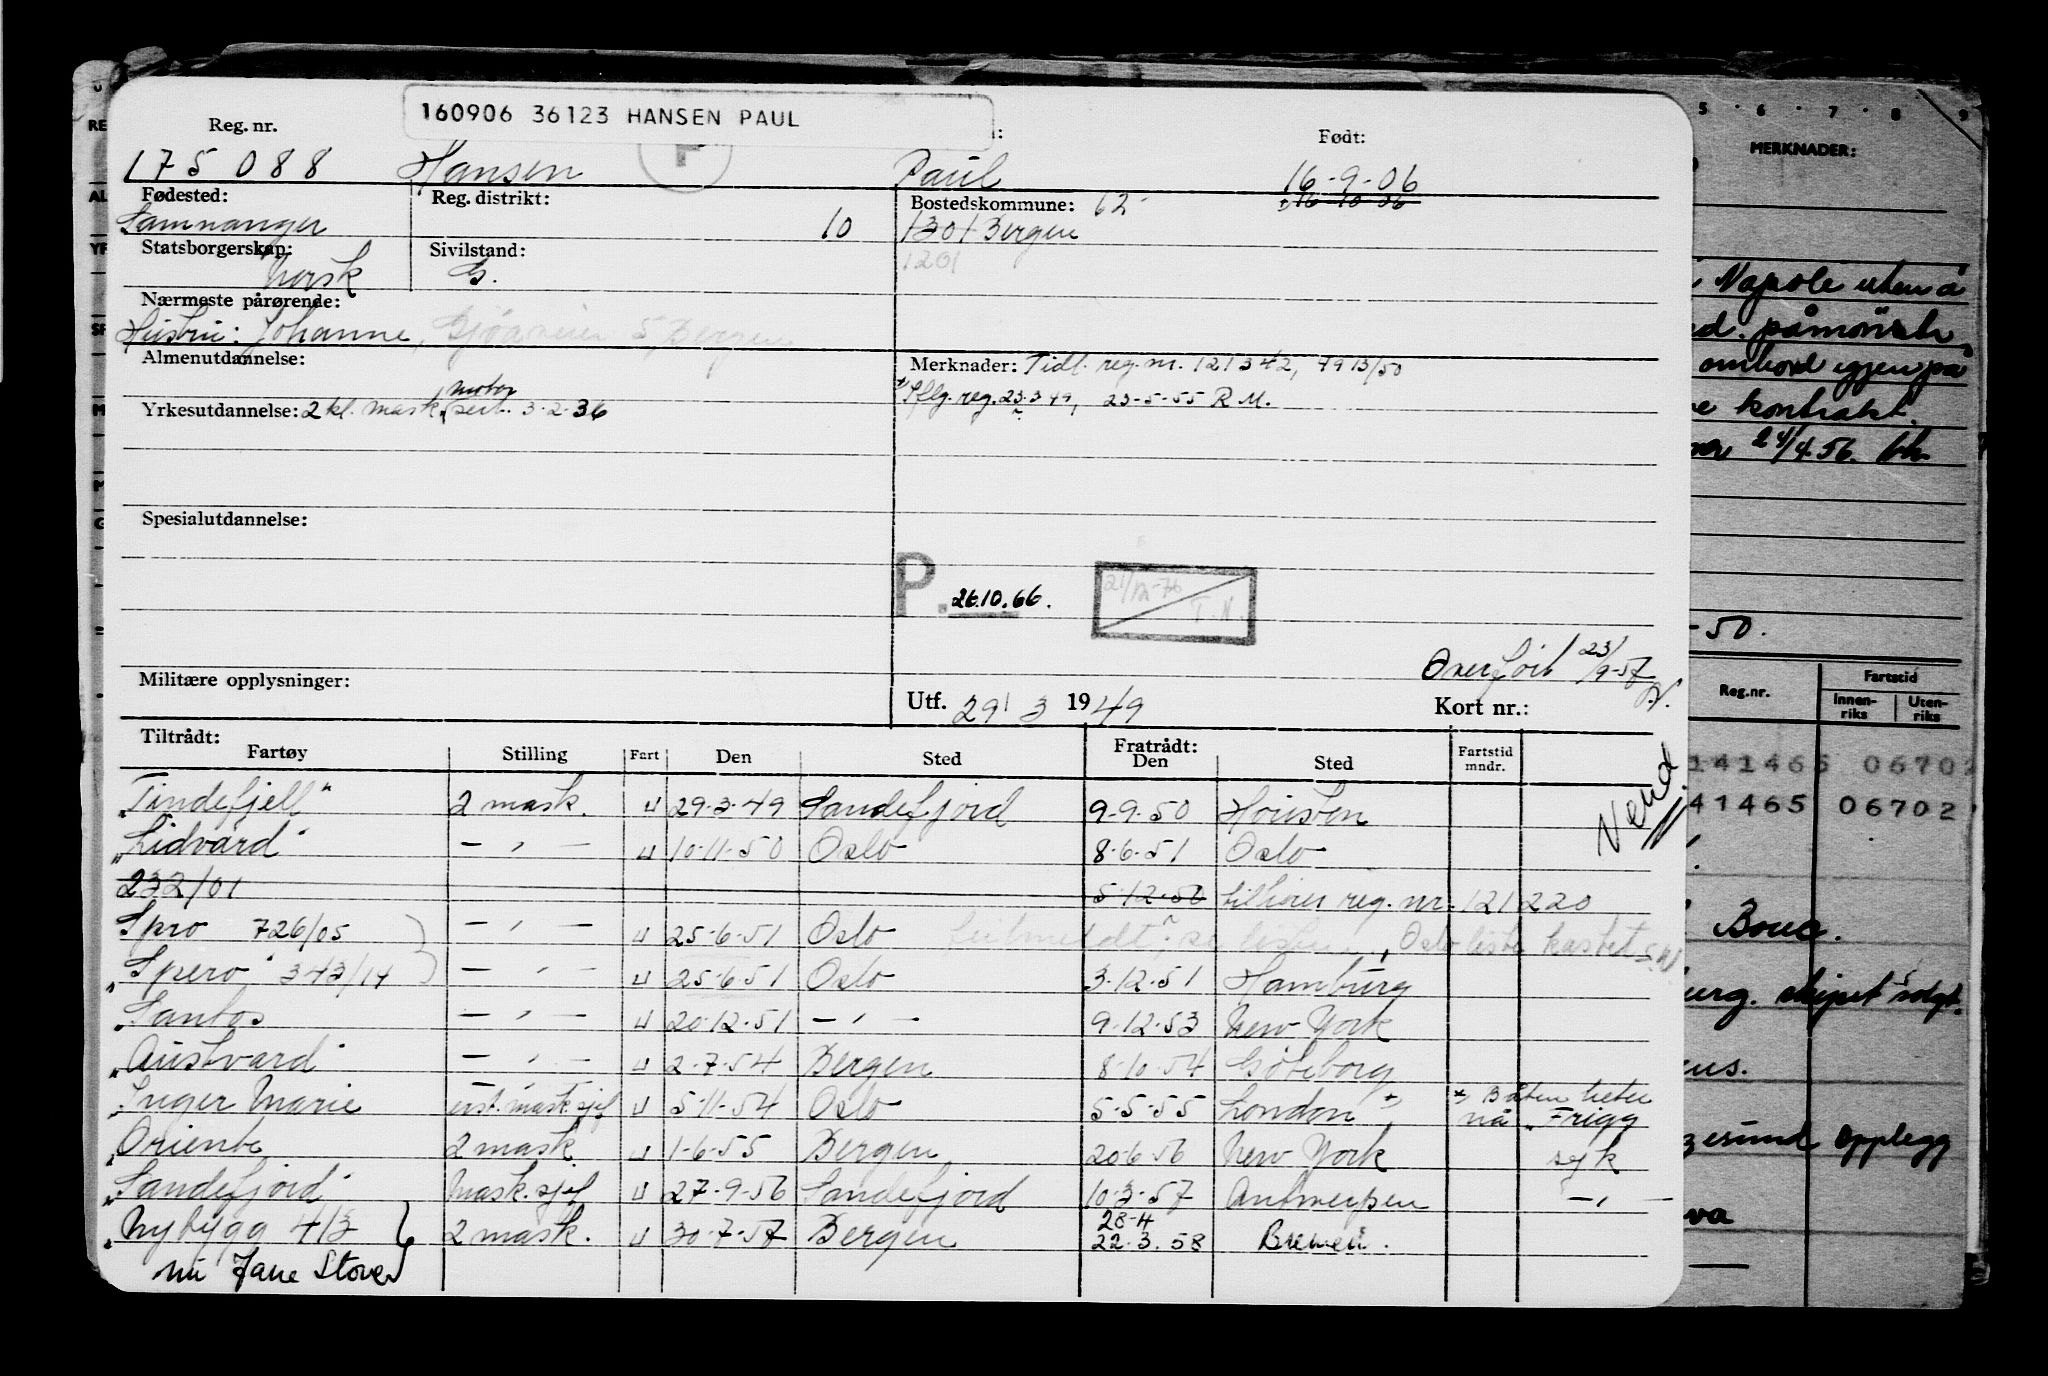 160906 36123 HANSEN PAUL
Reg. nr. Født:
175 088 Hansen Paul 16-9-06
Fødested: Reg. distrikt: Bostedskommune: 62- 16-10-06
Samnanger 10 1301 Bergen
Statsborgerskap: Sivilstand: 1201
Norsk G.
Nærmeste pårørende:
Hustru: Johanne, 5, Bergen
Almenutdannelse: Merknader: Tidl. reg. nr. 121342, 7913/50
motor
Yrkesutdannelse: 2 kl. mask, sert. 3-2-36 reg. 23.3.49, 23-5-55 R.M.
Spesialutdannelse:
P. 26.10.66. 21/12-76 T.N.
Overført 23/9-57
Militære opplysninger: Utf. 29/ 3 1949 Kort nr.:
Tiltrådt: Fratrådt:
Fartøy Stilling Fart Den Sted Den Sted Fartstid mndr.
Vend
"Tindefjell" 2 mask. u 29-3-49 Sandefjord 9-9-50 Houston
"Lidvard" — " — u 10-11-50 Oslo 8-6-51 Oslo
232/01 5-12-50 tilhører reg. nr. 121220
Spro 726/05 — " — u 25-6-51 Oslo feilmeldt, se listen, Oslo liste kastet
"Spero" 343/14 — " — u 25-6-51 Oslo 3-12-51 Hamburg
"Santos — " — u 20-12-51 — " — 9-12-53 New York
"Austvard" — " — u 2-7-54 Bergen 8-10-54 Göteborg
"Inger Marie mask.sjef u 5-11-54 Oslo 5-5-55 London *) *) Båten heter nå "Frigg
"Oriente 2 mask u 1-6-55 Bergen 20-6-56 New York syk
"Sandefjord" Mask.sjef u 27-9-56 Sandefjord 10-3-57 Antwerpen — " —
28-4
"Nybygg 413 2 mask. u 30-7-57 Bergen 22.3.58 Bremen.
nu Jane Stove
5 6 7 8 9
MERKNADER:
i Napoli uten å
påmønstre,
ombord igjen på
kontrakt.
24/4.56.
-50.
Reg.nr. Fartstid
Innen-riks Uten-riks
141465 06702
41465 06702
Bouc.
skipet solgt.
opplegg